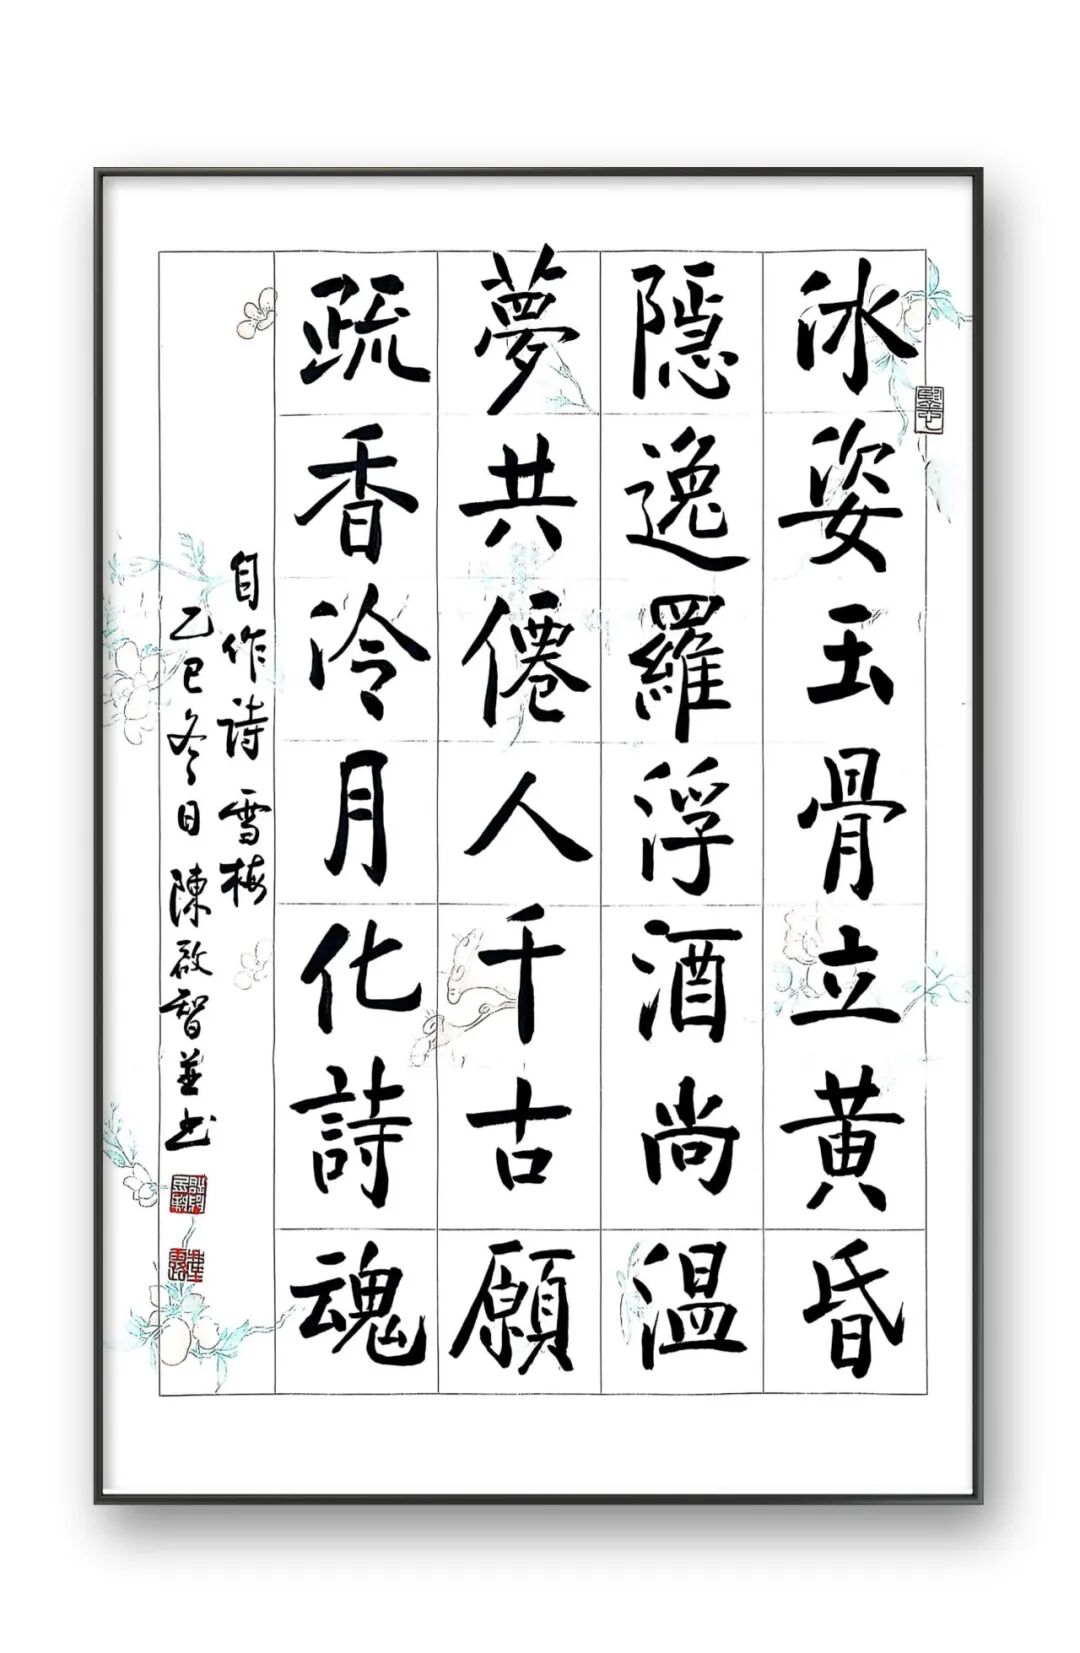 冰姿玉骨立黄昏
隱逸羅浮酒尚温
夢共僊人千古願
疏香冷月化詩魂
自作詩 雪梅
乙巳冬日 陳啟智並书